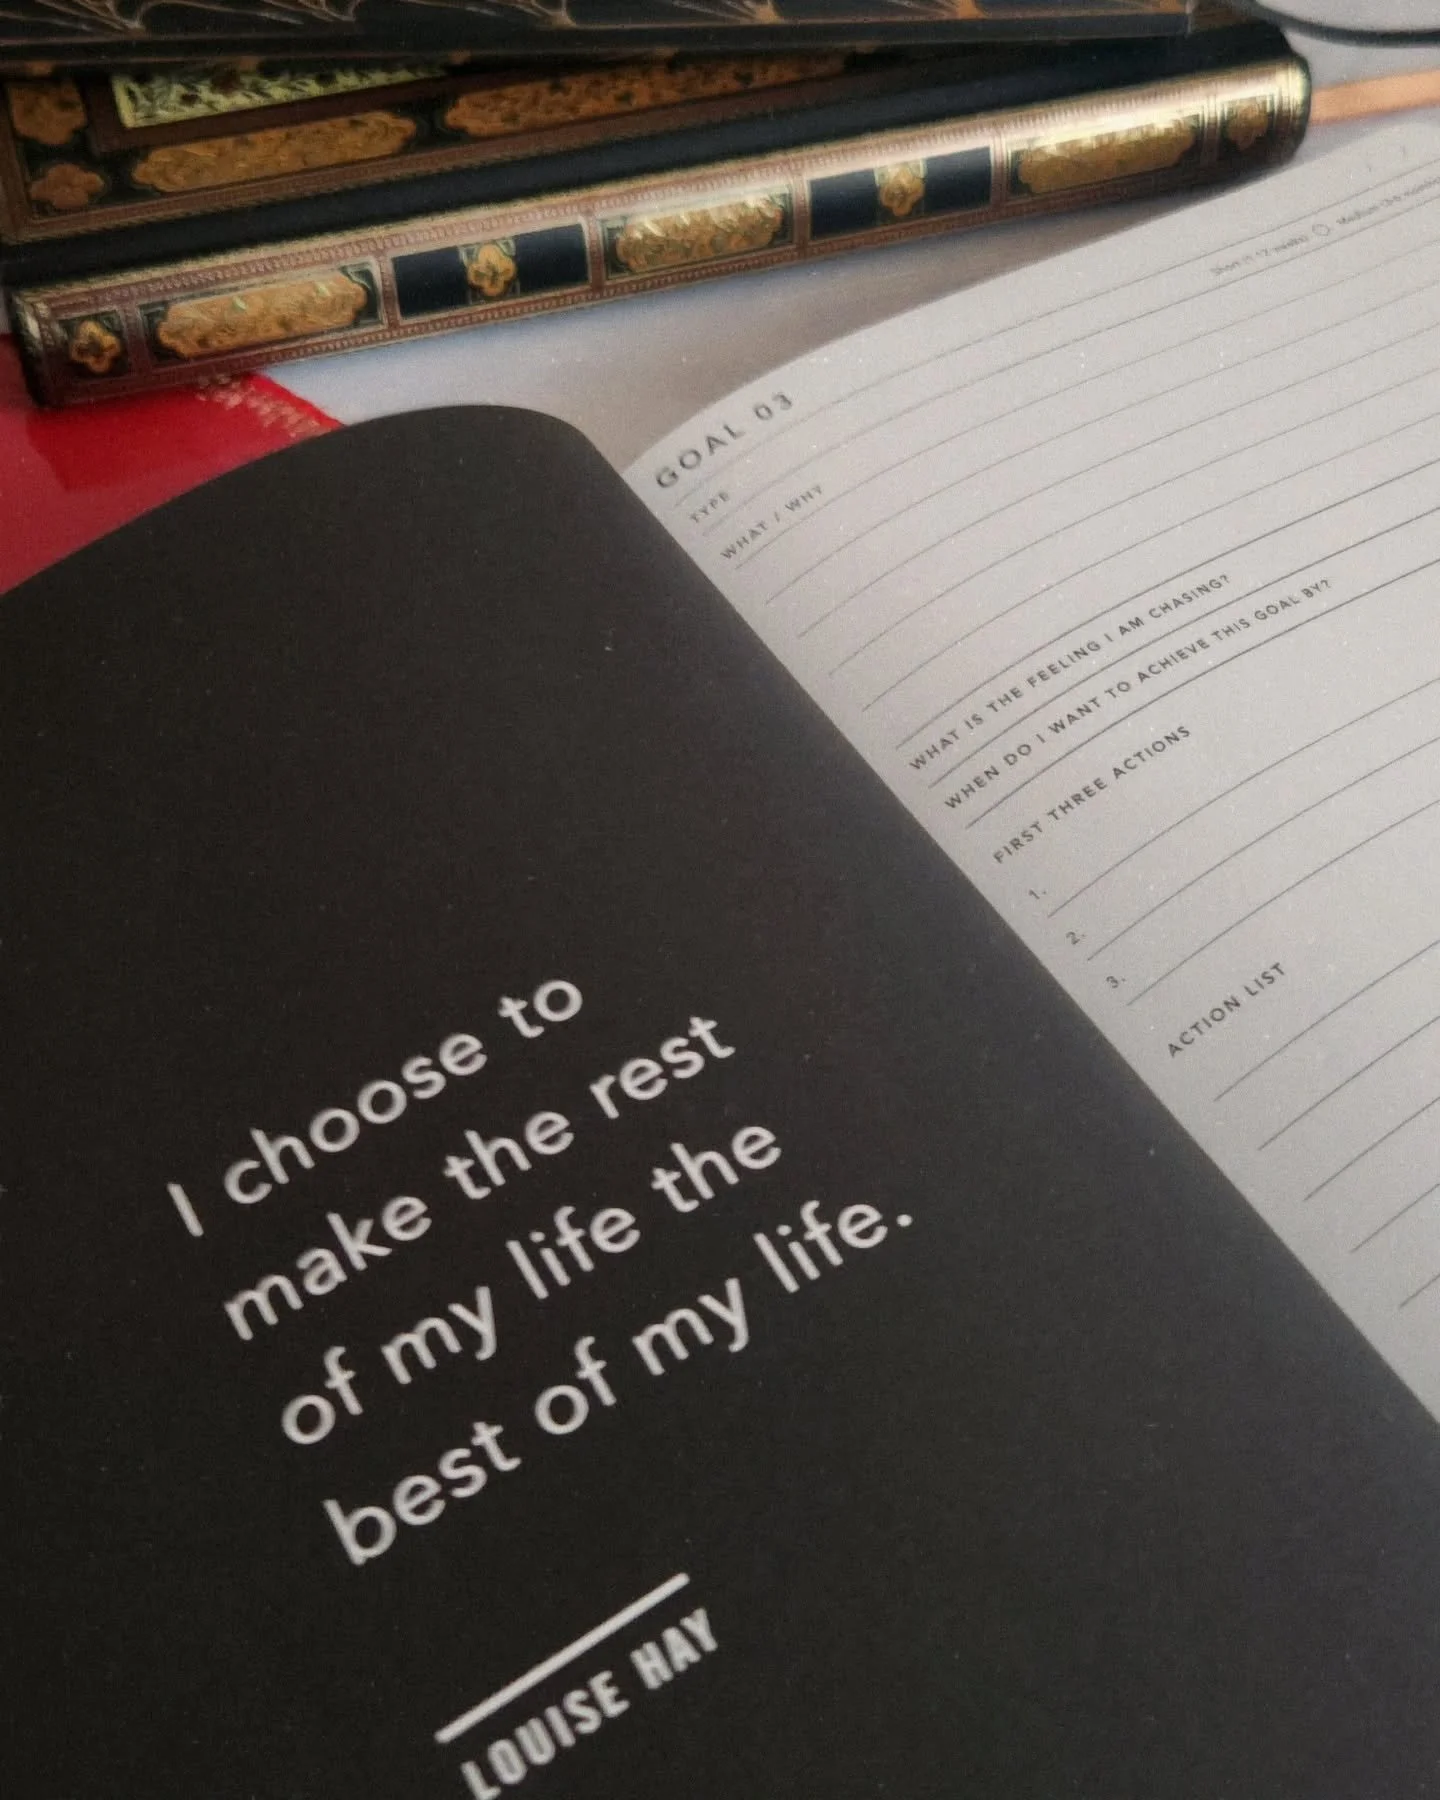 I choose to
make the rest
of my life the
best of my life.
LOUISE HAY
GOAL 03
TYPE
Short (1-12 weeks) Medium (3-6 months)
WHAT / WHY
WHAT IS THE FEELING I AM CHASING?
WHEN DO I WANT TO ACHIEVE THIS GOAL BY?
FIRST THREE ACTIONS
1.
2.
3.
ACTION LIST